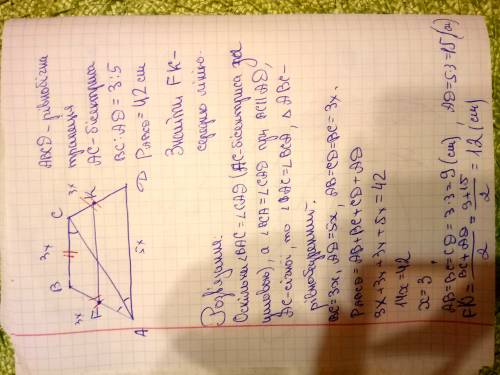 ABCD – рівнобічна
трапеція
AC – бісектриса
BC : AD = 3 : 5
P ABCD = 42 см
Знайти FK –
середню лінію.
B
C
3x
3x
3x
F
K
A
D
5x
Розв'язання:
Оскільки ∠BAC = ∠CAD (AC – бісектриса за
умовою), а ∠BCA = ∠CAD при BC ∥ AD,
AC – січній, то ∠BAC = ∠BCA, △ABC –
рівнобедрений.
BC = 3x, AD = 5x, AB = CD = BC = 3x.
P ABCD = AB + BC + CD + AD
3x + 3x + 3x + 5x = 42
14x = 42
x = 3.
AB = BC = CD = 3·3 = 9 (см), AD = 5·3 = 15 (см)
FK = (BC + AD)/2 = (9 + 15)/2 = 12 (см)